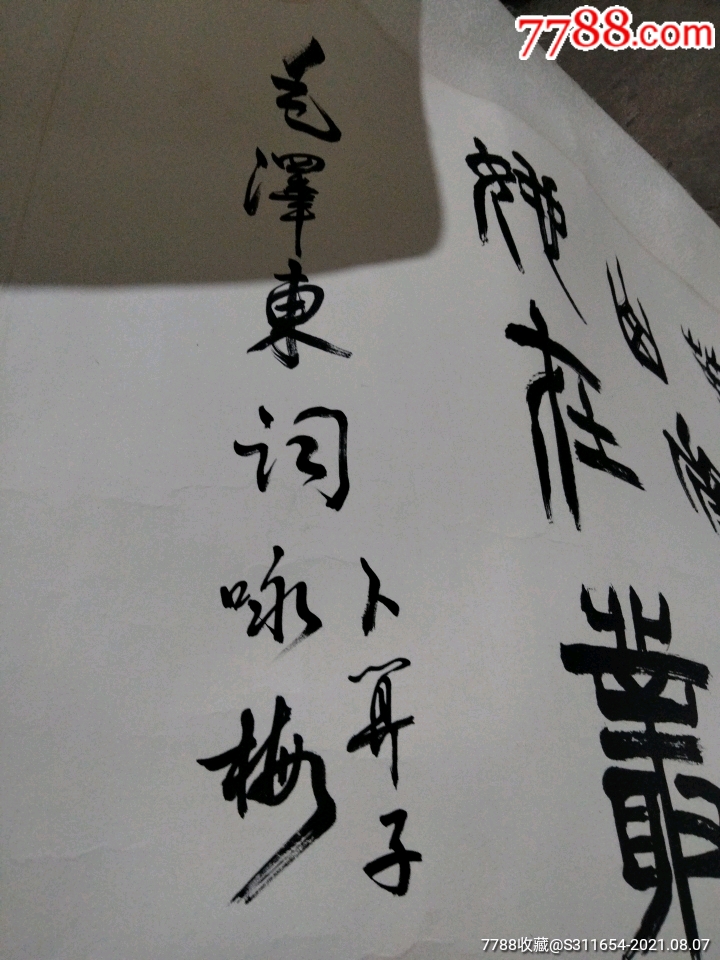 7788.com
她在叢
毛澤東词咏梅
卜算子
7788收藏@S311654-2021.08.07